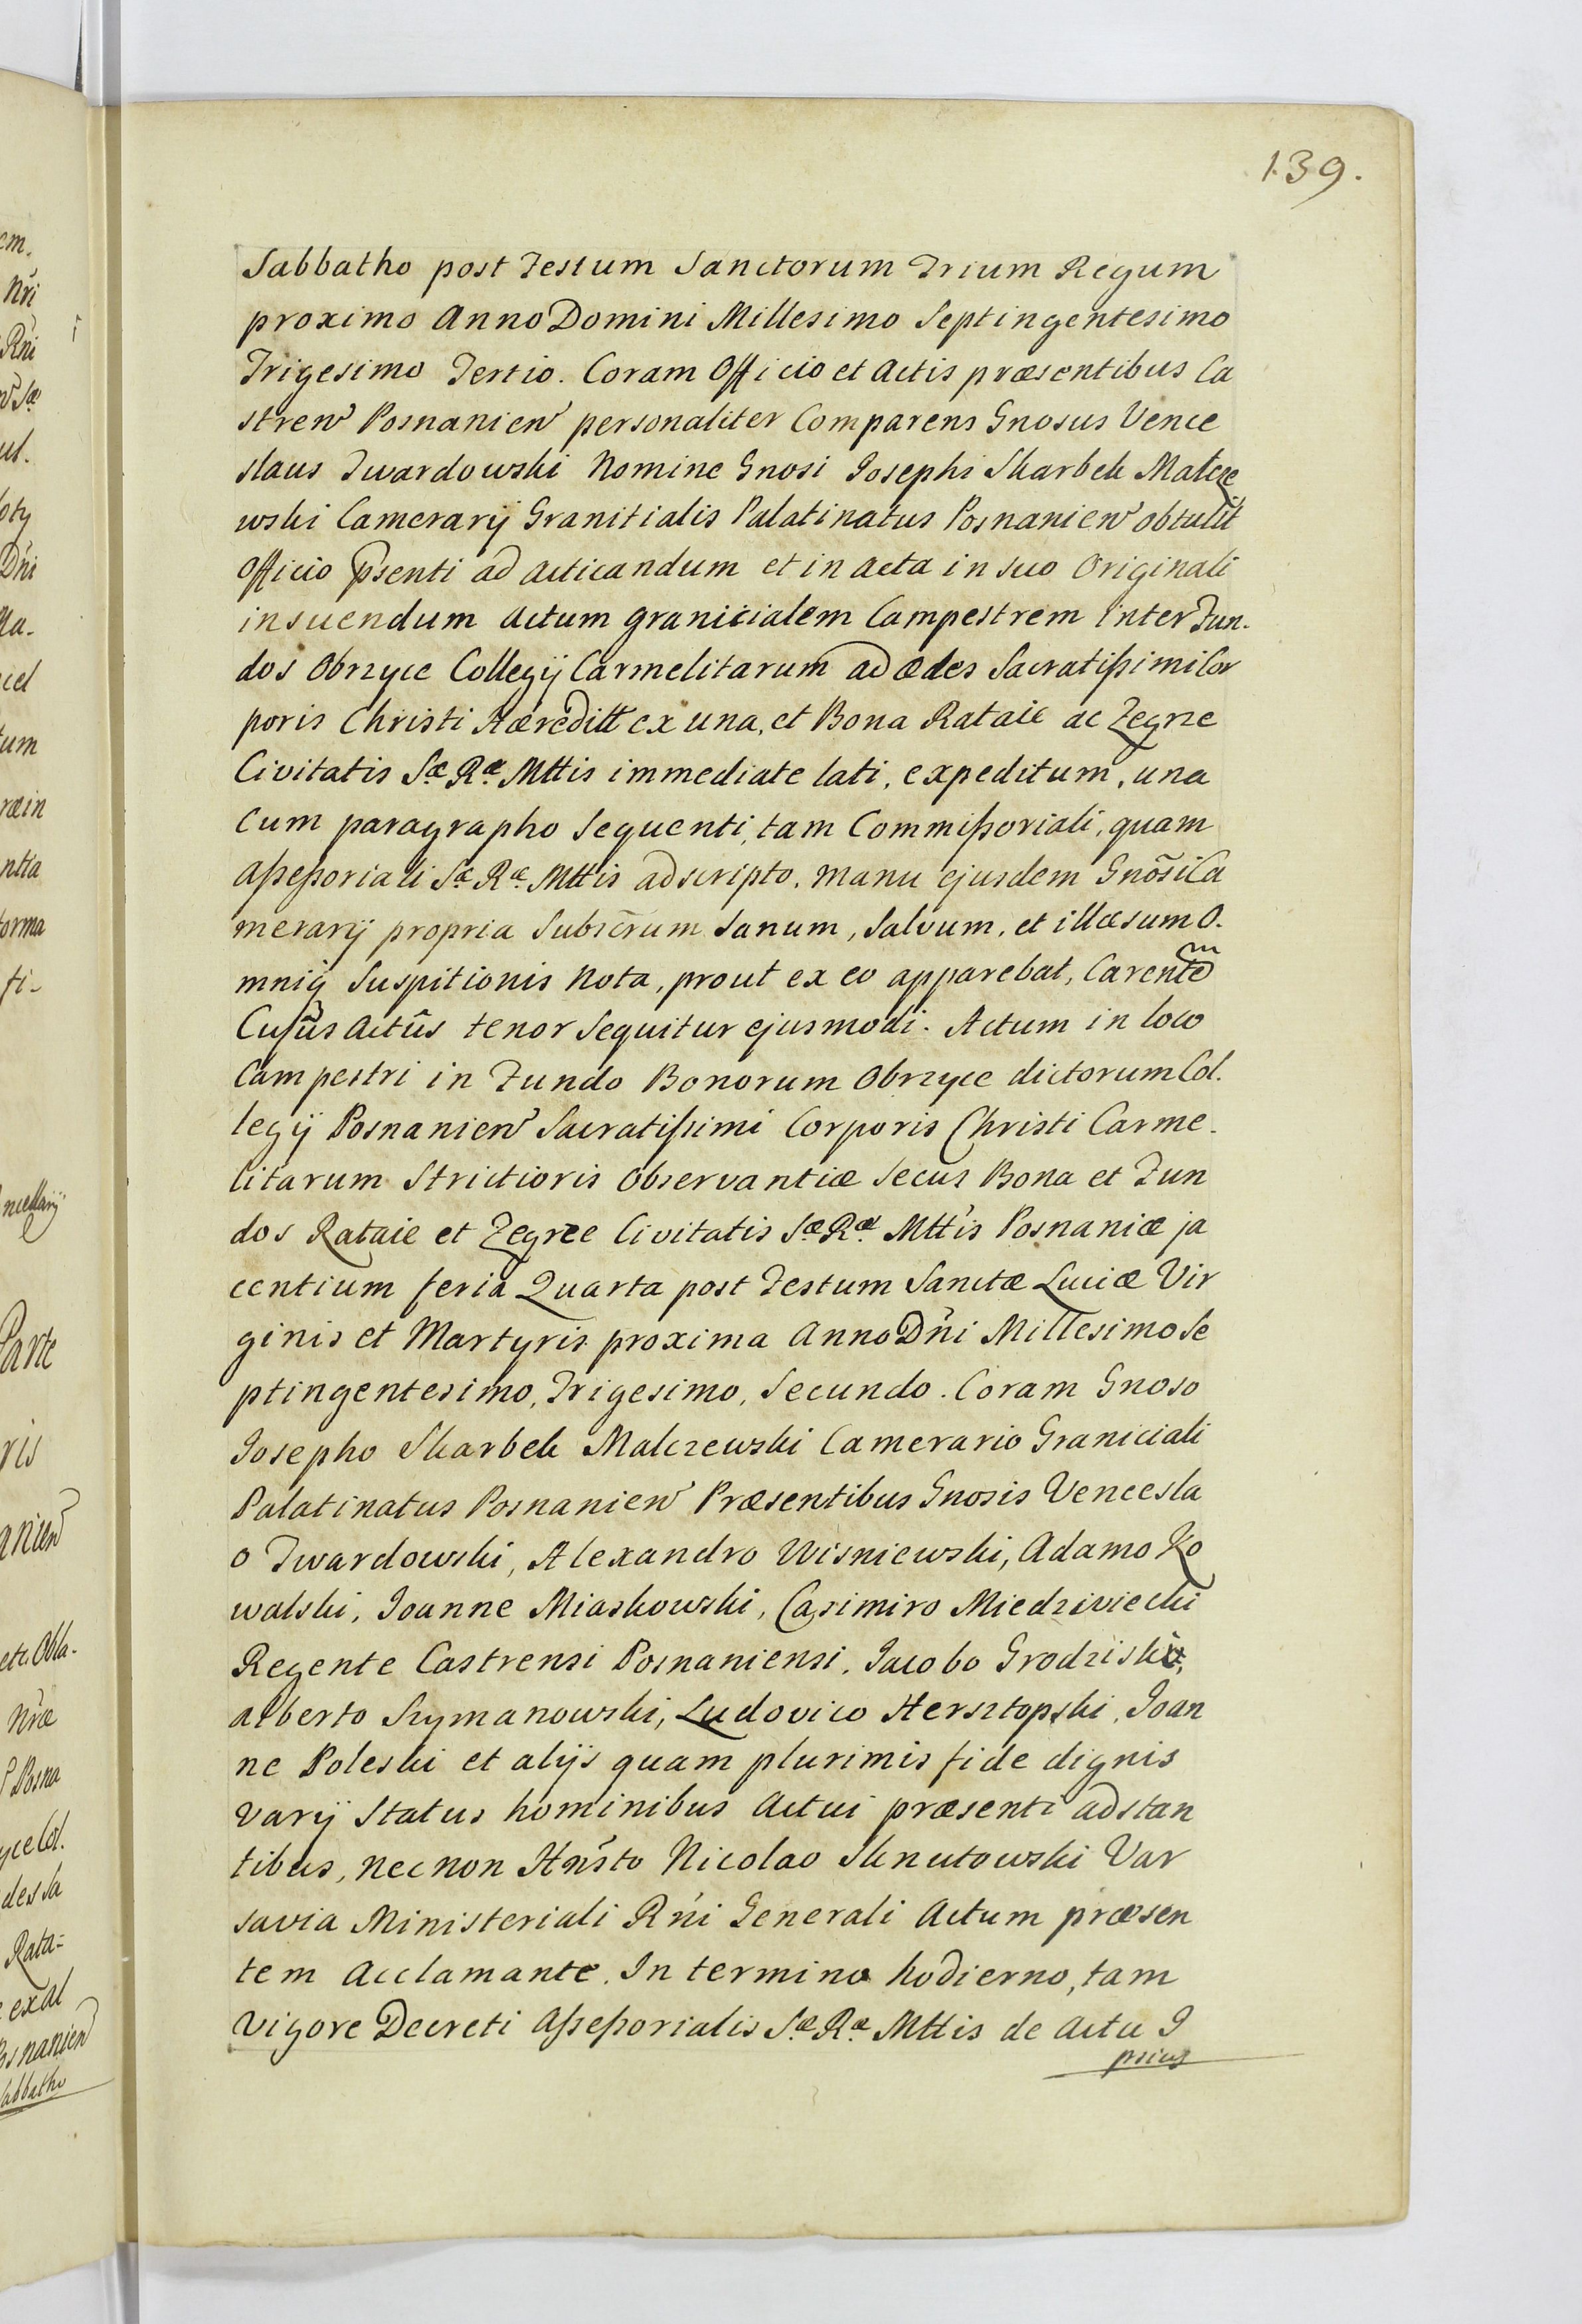 139.
Sabbatho post Festum Sanctorum Trium Regum
proximo Anno Domini Millesimo Septingentesimo
Trigesimo Tertio. Coram Officio et Actis præsentibus Ca
stren Posnanien personaliter Comparens Gnosus Vence
slaus Twardowski Nomine Gnosi Josephi Skarbek Malcze
wski Camerarÿ Granitialis Palatinatus Posnanien obtulit
Officio psenti ad acticandum et in acta in suo Originali
insuendum actum granicialem Campestrem inter Fun.
dos Obrzyce Collegÿ Carmelitarum ad ædes Sacratißimi Cor
poris Christi Hæreditt ex una, et Bona Rataie ac Zegrze
Civitatis Sæ Ræ Mttis immediate lati, expeditum, una
Cum paragrapho Sequenti, tam Commißoriali, quam
aßeßoriali Sæ Ræ Mttis adscripto. manu ejusdem Gnõsi Ca
merarÿ propria Subscrum Sanum, Salvum, et illæsum O.
mniq Suspitionis Nota, prout ex eo apparebat, Carentem
Cujus actûs tenor Sequitur ejusmodi. Actum in loco
Campestri in Fundo Bonorum Obrzyce dictorum Col.
legÿ Posnanien Sacratißimi Corporis Christi Carme.
litarum Strictioris Observantiæ Secus Bona et Fun
dos Rataie et Zegrze Civitatis Sæ Ræ Mttis Posnaniæ ja
centium feria Quarta post Festum Sanctæ Luciæ Vir
ginis et Martyris proxima Anno Dni Millesimo Se
ptingentesimo, Trigesimo, Secundo. Coram Gnoso
Josepho Skarbek Malczewski Camerario Graniciali
Palatinatus Posnanien Præsentibus Gnosis Vencesla
o Twardowski, Alexandro Wisniewski, Adamo Ko
walski, Joanne Miaskowski, Casimiro Miedzwiecki
Regente Castrensi Posnaniensi, Jacobo Grodziski,
alberto Szymanowski, Ludovico Hersztopski, Joan
ne Poleski et alÿs quam plurimis fide dignis
Varÿ Status hominibus Actui præsenti adstan
tibus, nec non Hnsto Nicolao Sknutowski Var
savia Ministeriali Rni Generali Actum præsen
tem Acclamante. In termino hodierno, tam
Vigore Decreti Aßeßorialis Sæ Ræ Mttis de Actu I
psius